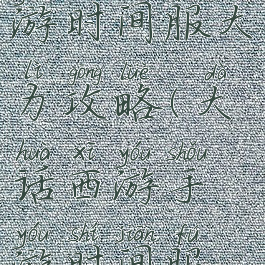 游时间服大
lì gōng lüè dà
力攻略(大
huà xī yóu shǒu
话西游手
yóu shí jiān fú
游时间服